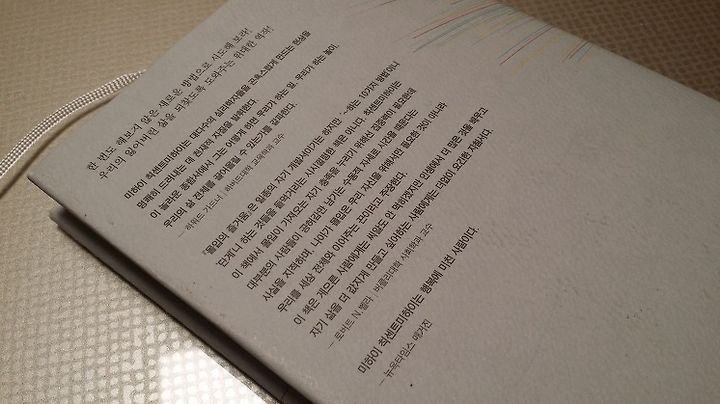 한 번도 해보지 않은 새로운 방법으로 시도해 보라!
우리의 잃어버린 삶을 되찾도록 도와주는 위대한 역작!
미하이 칙센트미하이는 대다수의 심리학자들을 곤혹스럽게 만드는 현상을
명쾌히 드러내는 데 천재적 자질을 발휘한다.
이 놀라운 종합서에서 그는 어떻게 하면 우리가 하는 일, 우리가 하는 놀이,
우리의 삶 전체를 끌어올릴 수 있는가를 갈파한다.
— 하워드 가드너 | 하버드대학 교육학과 교수
『몰입의 즐거움』은 일종의 자기 계발서이기는 하지만, '~하는 10가지 방법'이나
'단계'니 하는 것들을 들먹거리는 시시껄렁한 책은 아니다. 칙센트미하이는
이 책에서 몰입이 가져오는 자기 충족을 누리기 위해선 집중력이 필요한데
대부분의 사람들이 공허감만 남기는 수동적 자세로 시간을 때운다는
사실을 지적하며, 나아가 몰입은 우리 자신을 위해서만 필요한 것이 아니라
우리를 세상 전체와 이어주는 끈이라고 주장한다.
이 책은 게으른 사람에게는 씨알도 안 먹히겠지만 인생에서 더 많은 것을 배우고
자기 삶을 더 값지게 만들고 싶어하는 사람들에게는 더없이 요긴한 자원서다.
— 로버트 N. 벨라 | 버클리대학 사회학과 교수
미하이 칙센트미하이는 행복에 미친 사람이다.
— 뉴욕타임스 매거진